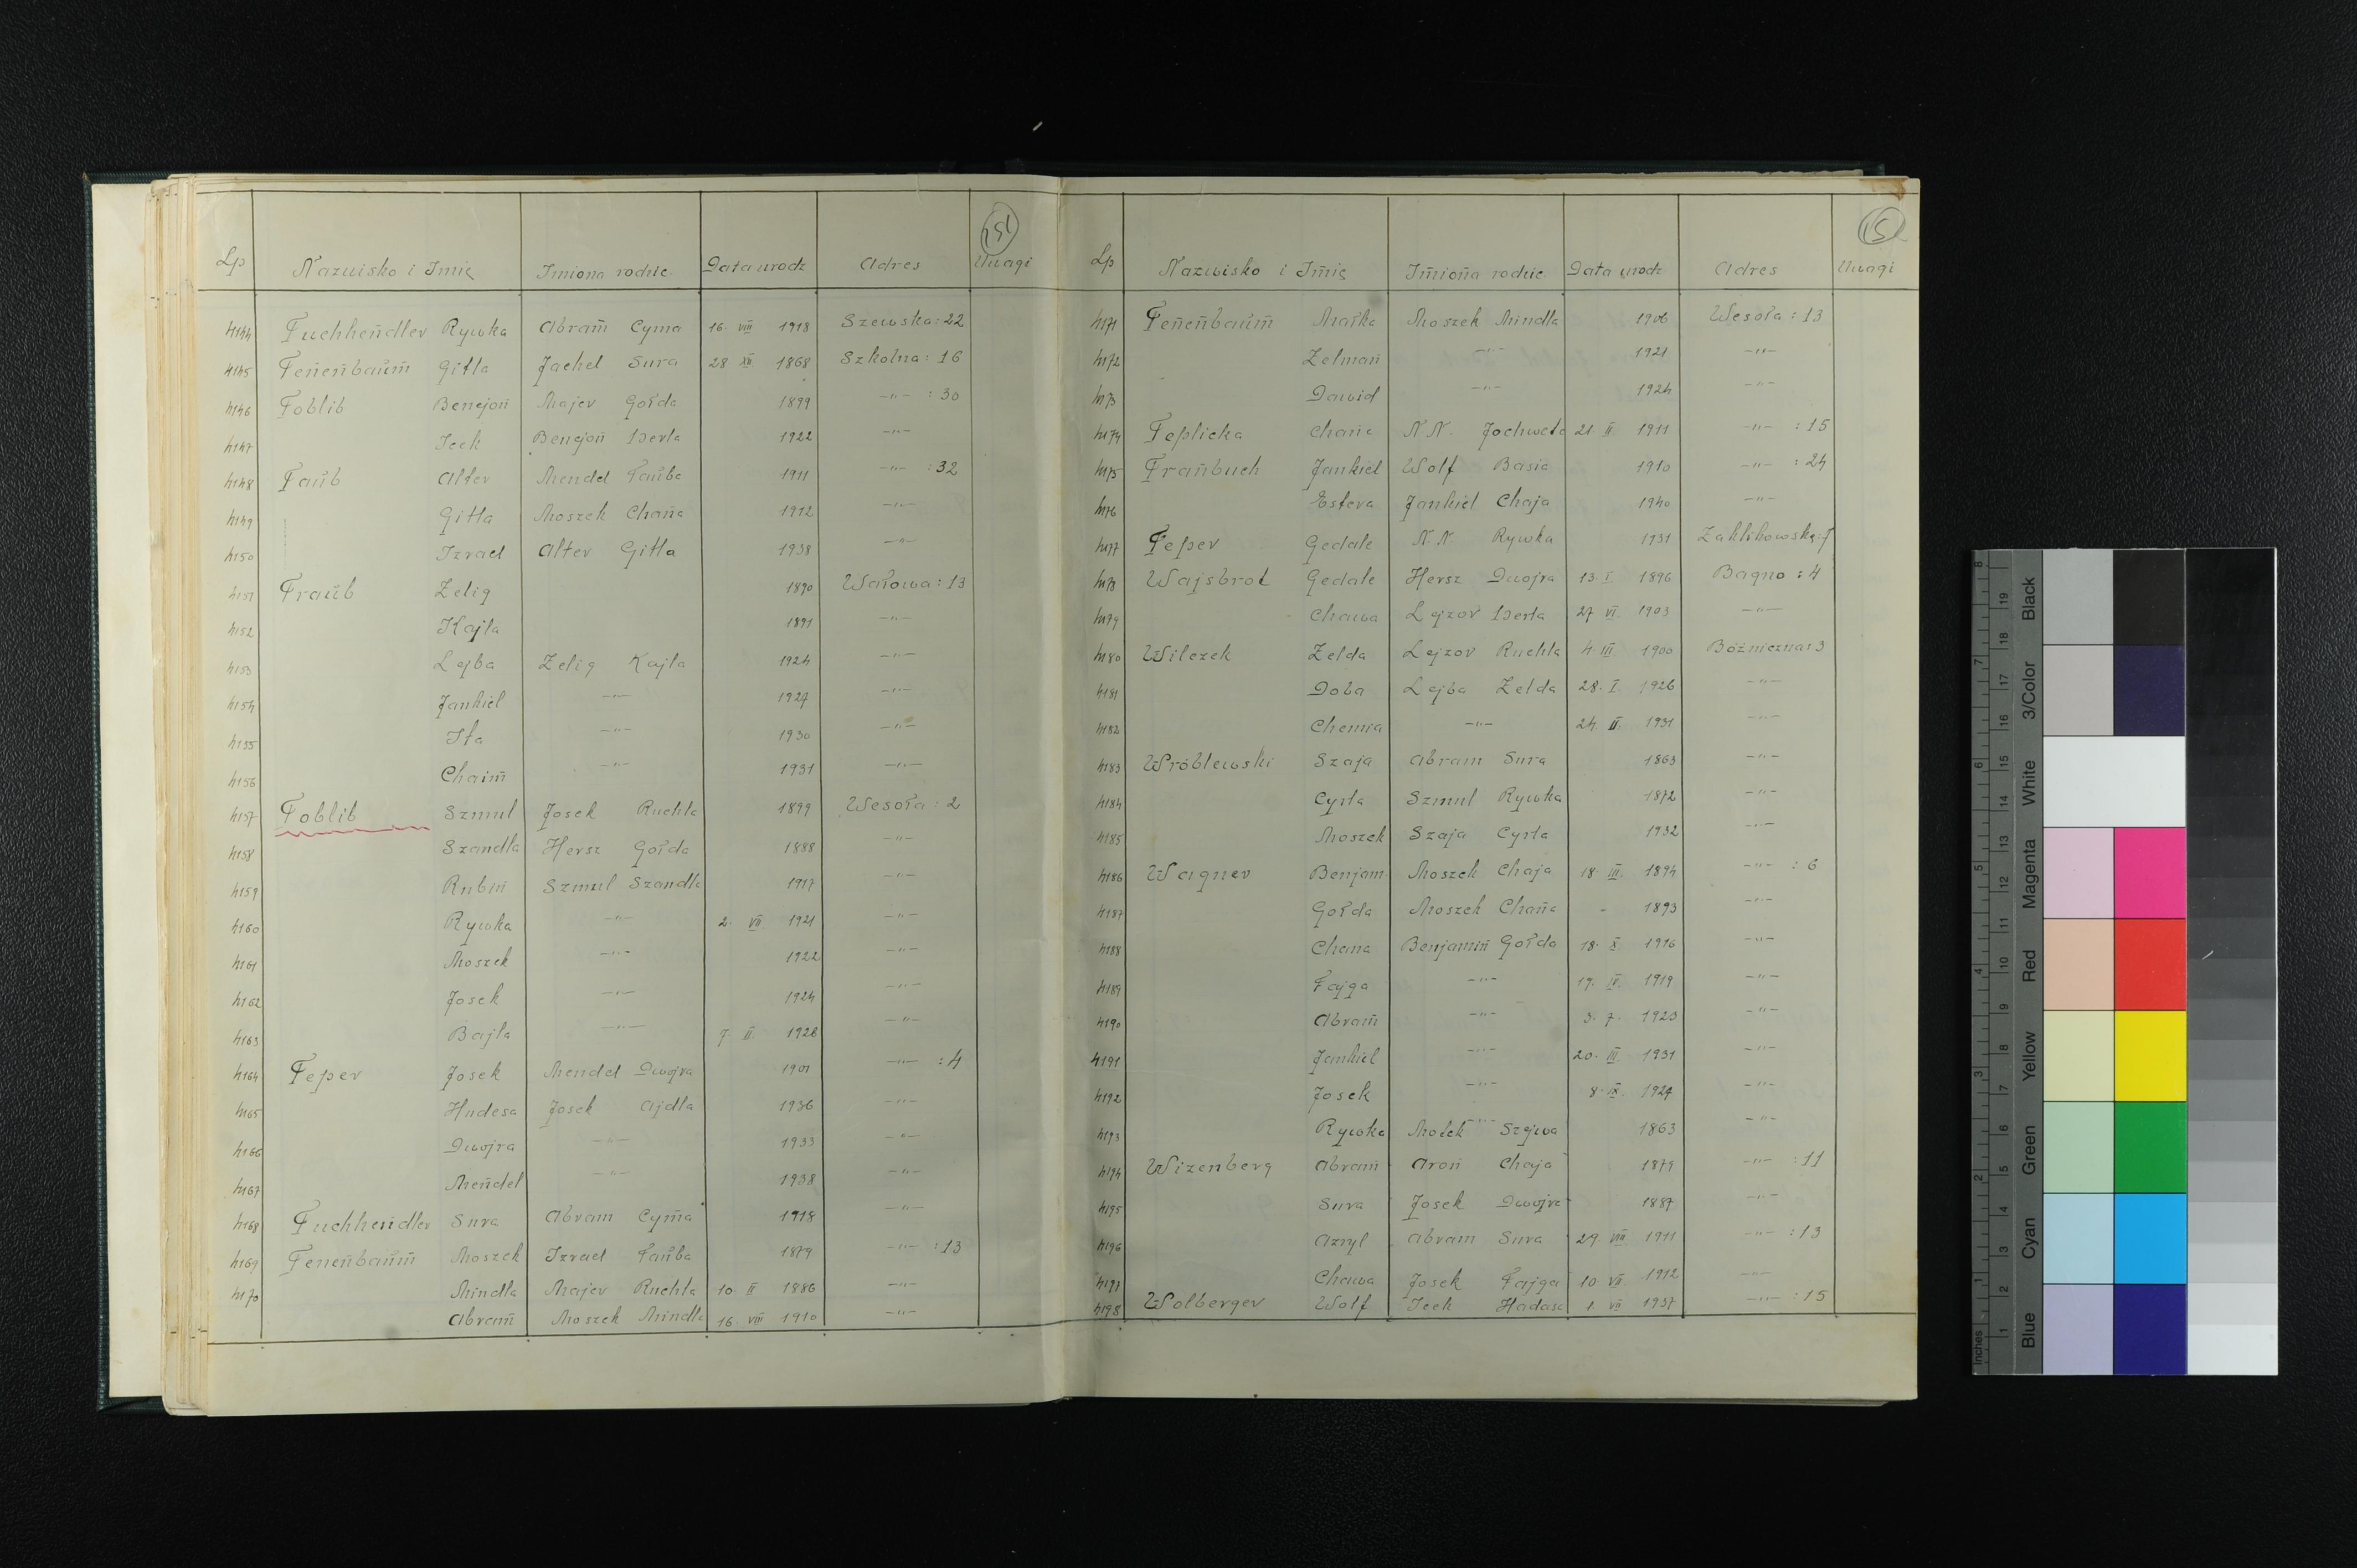 151
Lp Nazwisko i Imię Imiona rodzic. Data urodz Adres Uwagi
4144 Tuchhendler Rywka Abram Cyma 16. VIII 1918 Szewska: 22
4145 Tenenbaum Gitla Jachel Sura 28 XII. 1868 Szkolna: 16
4146 Toblib Benejon Majer Gołda 1899 -"- : 30
4147 Icek Benejon Berla 1922 -"-
4148 Taub Alter Mendel Tauba 1911 -"- : 32
4149 Gitla Moszek Chana 1912 -"-
4150 Izrael Alter Gitla 1938 -"-
4151 Traub Zelig 1890 Wałowa: 13
4152 Kajla 1891 -"-
4153 Lejba Zelig Kajla 1924 -"-
4154 Jankiel -"- 1927 -"-
4155 Ita -"- 1930 -"-
4156 Chaim -"- 1931 -"-
4157 Toblib Szmul Josek Ruchla 1899 Wesoła: 2
4158 Szandla Hersz Gołda 1888 -"-
4159 Rubin Szmul Szandla 1917 -"-
4160 Rywka -"- 2. VII 1921 -"-
4161 Moszek -"- 1922 -"-
4162 Josek -"- 1924 -"-
4163 Bajla -"- 7. II. 1928 -"-
4164 Teper Josek Mendel Dwojra 1901 -"- : 4
4165 Hudesa Josek Ajdla 1936 -"-
4166 Dwojra -"- 1933 -"-
4167 Mendel -"- 1938 -"-
4168 Tuchhendler Sura Abram Cyma 1918 -"-
4169 Tenenbaum Moszek Izrael Tauba 1879 -"- : 13
4170 Mindla Majer Ruchla 10 II 1886 -"-
Abram Moszek Mindla 16. VIII 1910 -"-
152
Lp Nazwisko i Imię Imiona rodzic. Data urodz Adres Uwagi
4171 Tenenbaum Małka Moszek Mindla 1906 Wesoła: 13
4172 Zelman -"- 1921 -"-
4173 Dawid -"- 1924 -"-
4174 Teplicka Chana N.N. Jochweta 21 II 1911 -"- : 15
4175 Tranbuch Jankiel Wolf Basia 1910 -"- : 24
4176 Estera Jankiel Chaja 1940 -"-
4177 Teper Gedale N.N Rywka 1931 Zaklikowska 7
4178 Wajsbrot Gedale Hersz Dwojra 13. I 1896 Bagno: 4
4179 Chawa Lejzor Berta 27 VI. 1903 -"-
4180 Wilczek Zelda Lejzor Ruchla 4 III 1900 Bóżniczna: 3
4181 Doba Lejba Zelda 28. I. 1926 -"-
4182 Chemia -"- 24. II. 1931 -"-
4183 Wróblewski Szaja Abram Sura 1863 -"-
4184 Cyrla Szmul Rywka 1872 -"-
4185 Moszek Szaja Cyrla 1932 -"-
4186 Wagner Benjam Moszek Chaja 18. III. 1894 -"- : 6
4187 Gołda Moszek Chana - 1893 -"-
4188 Chana Benjamin Gołda 18. X 1916 -"-
4189 Fajga -"- 19. IV. 1919 -"-
4190 Abram -"- 3. 7. 1923 -"-
4191 Jankiel -"- 20. III. 1931 -"-
4192 Josek -"- 8. IX. 1927 -"-
4193 Rywka Motek Szejwa 1863 -"-
4194 Wizenberg Abram Aron Chaja 1879 -"- : 11
4195 Sura Josek Dwojra 1887 -"-
4196 Azryl Abram Sura 29 VIII 1911 -"- : 13
4197 Chawa Josek Fajga 10. VII. 1912 -"-
4198 Wolberger Wolf Icek Hadasa 1. VII 1937 -"- : 15
Inches 1 2 3 4 5 6 7 8
1 2 3 4 5 6 7 8 9 10 11 12 13 14 15 16 17 18 19
Blue Cyan Green Yellow Red Magenta White 3/Color Black